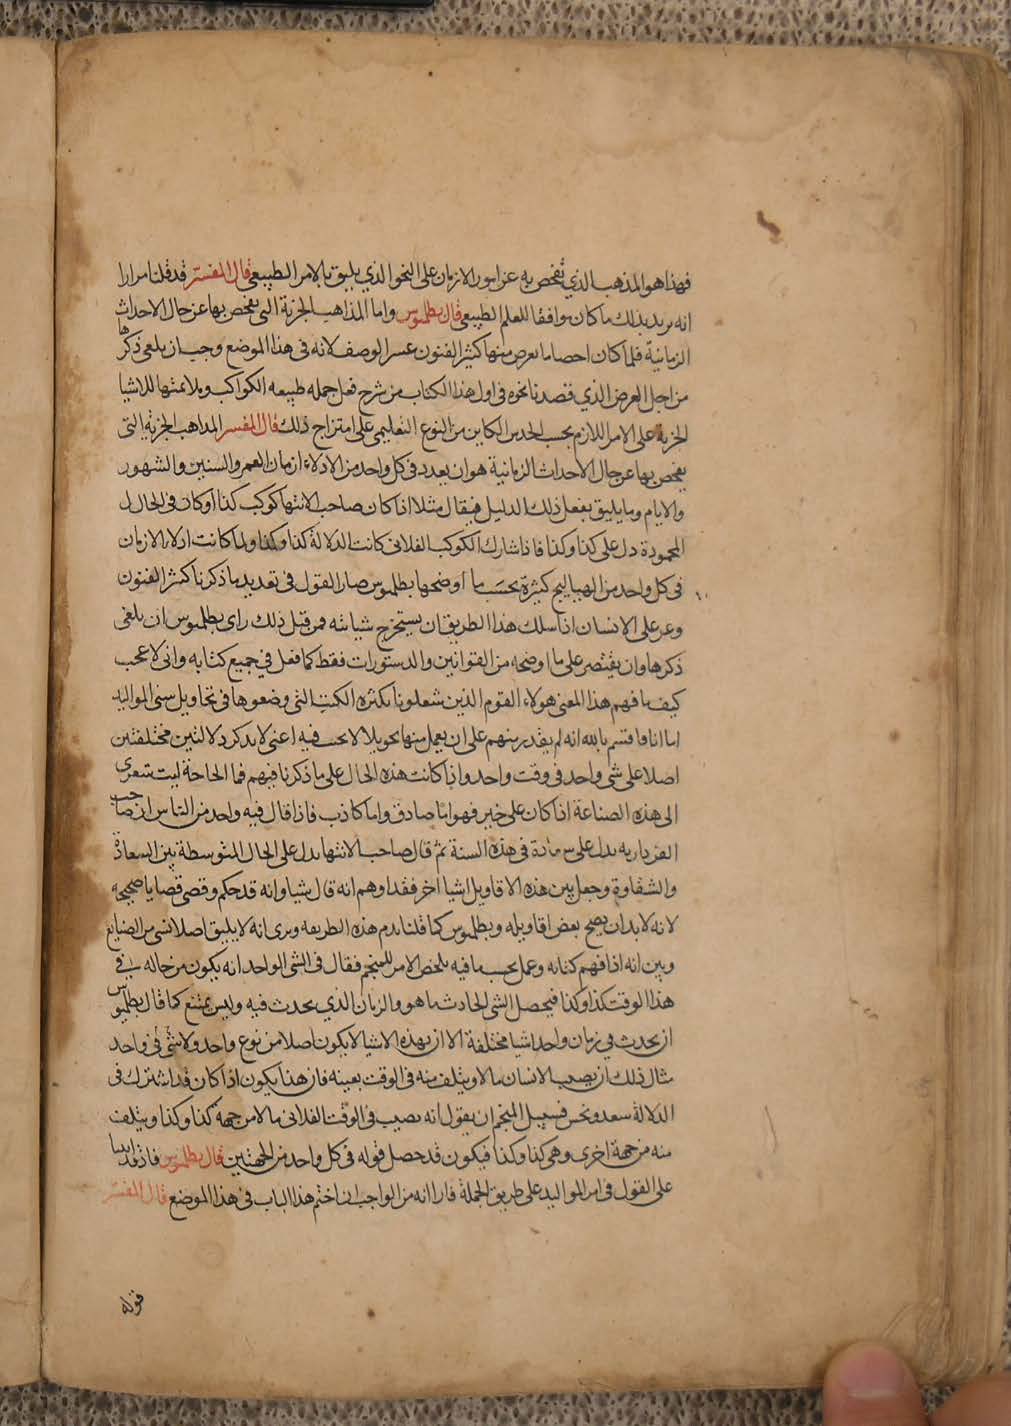 فهذا هو المذهب الذي نفحص به عن امور الازمان على النحو الذي يليق بالامر الطبيعي قال المفسر قد قلنا مرارا
انه يريد بذلك ما كان موافقا للعلم الطبيعي قال بطلميوس واما المذاهب الجزية التي يفحص بها عن حال الاحداث
الزمانية فلما كان احصا ما يعرض منها كثير الفنون عسر الوصف لانه في هذا الموضع وجب ان يلغى ذكرها
من اجل الغرض الذي قصدنا نحوه في اول هذا الكتاب من شرح فعل جملة طبيعه الكواكب وملائمتها للاشيا
الجزية على الامر اللازم بحسب الحدس الكاين من النوع التعليمي على امتزاج ذلك قال المفسر المذاهب الجزية التي
يفحص بها عن حال الاحداث الزمانية هو ان يعدد في كل واحد من الادلاء ازمان العمر والسنين والشهور
والايام وما يليق بفعل ذلك الدليل فيقال مثلا اذا كان صاحب الانتها كوكب كذا او كان في الحال
المحمودة دل على كذا وكذا فاذا شارك الكوكب الفلاني كانت الدلالة كذا وكذا ولما كانت ادلاء الازمان
في كل واحد من الهياليج كثيرة بحسب ما اوضحها بطلميوس صار القول في تعديد ما ذكرنا كثير الفنون
وعسر على الانسان اذا سلك هذا الطريق ان يستخرج شيا منه فمن قبل ذلك راى بطلميوس ان يلغى
ذكرها وان يقتصر على ما اوضحه من القوانين والدستورات فقط كما فعل في جميع كتابه وانى لاعجب
كيف ما فهم هذا المعنى هولاء القوم الذين شغلونا بكثرة الكتب التي وضعوها في تحاويل سنى المواليد
اما انا فاقسم بالله انه لم يقدر منهم على ان يعمل منها تحويلا لا يحسب فيه اعنى لا يذكر دلالتين مختلفتين
اصلا على شي واحد في وقت واحد واذا كانت هذه الحال على ما ذكرنا فيهم فما الحاجة ليت شعري
الى هذه الصناعة اذا كان على خبر فهو اما صادق واما كاذب فاذا قال فيه واحد من الناس ان صاحب
الفرداريه يدل على سعادة في هذه السنة ثم قال صاحب الانتها يدل على الحال المتوسطة بين السعادة
والشقاوة وجعل بين هذه الاقاويل اشيا اخر فقد اوهم انه قال شيا وانه قد حكم وقصى قصايا صحيحه
لانه لا بد ان يصح بعض اقاويله وبطلميوس كما قلنا يذم هذه الطريقه ويرى انه لا يليق اصلا بشي من الصنايع
وبين انه اذا فهم كتابه وعمل بحسب ما فيه يلخص الامر للمنجم فقال في الشي الواحد انه يكون من حاله في
هذا الوقت كذا وكذا فيحصل الشي الحادث ما هو والزمان الذي يحدث فيه وليس يمتنع كما قال بطلميوس
ان يحدث في زمان واحد اشيا مختلفة الا ان هذه الاشيا لا يكون اصلا من نوع واحد ولا شي في واحد
مثال ذلك ان يصيب الانسان مالا ويتلف منه في الوقت بعينه فان هذا يكون اذا كان قد اشترك في
الدلالة سعد ونحس فسبيل المنجم ان يقول انه يصيب في الوقت الفلاني مالا من جهة كذا وكذا ويتلف
منه من جهة اخرى وهي كذا وكذا فيكون قد حصل قوله في كل واحد من الجهتين قال بطلميوس فاذ قد اتينا
على القول في امر المواليد على طريق الجملة فارا انه من الواجب ان اختم هذا الباب في هذا الموضع قال المفسر
قوله